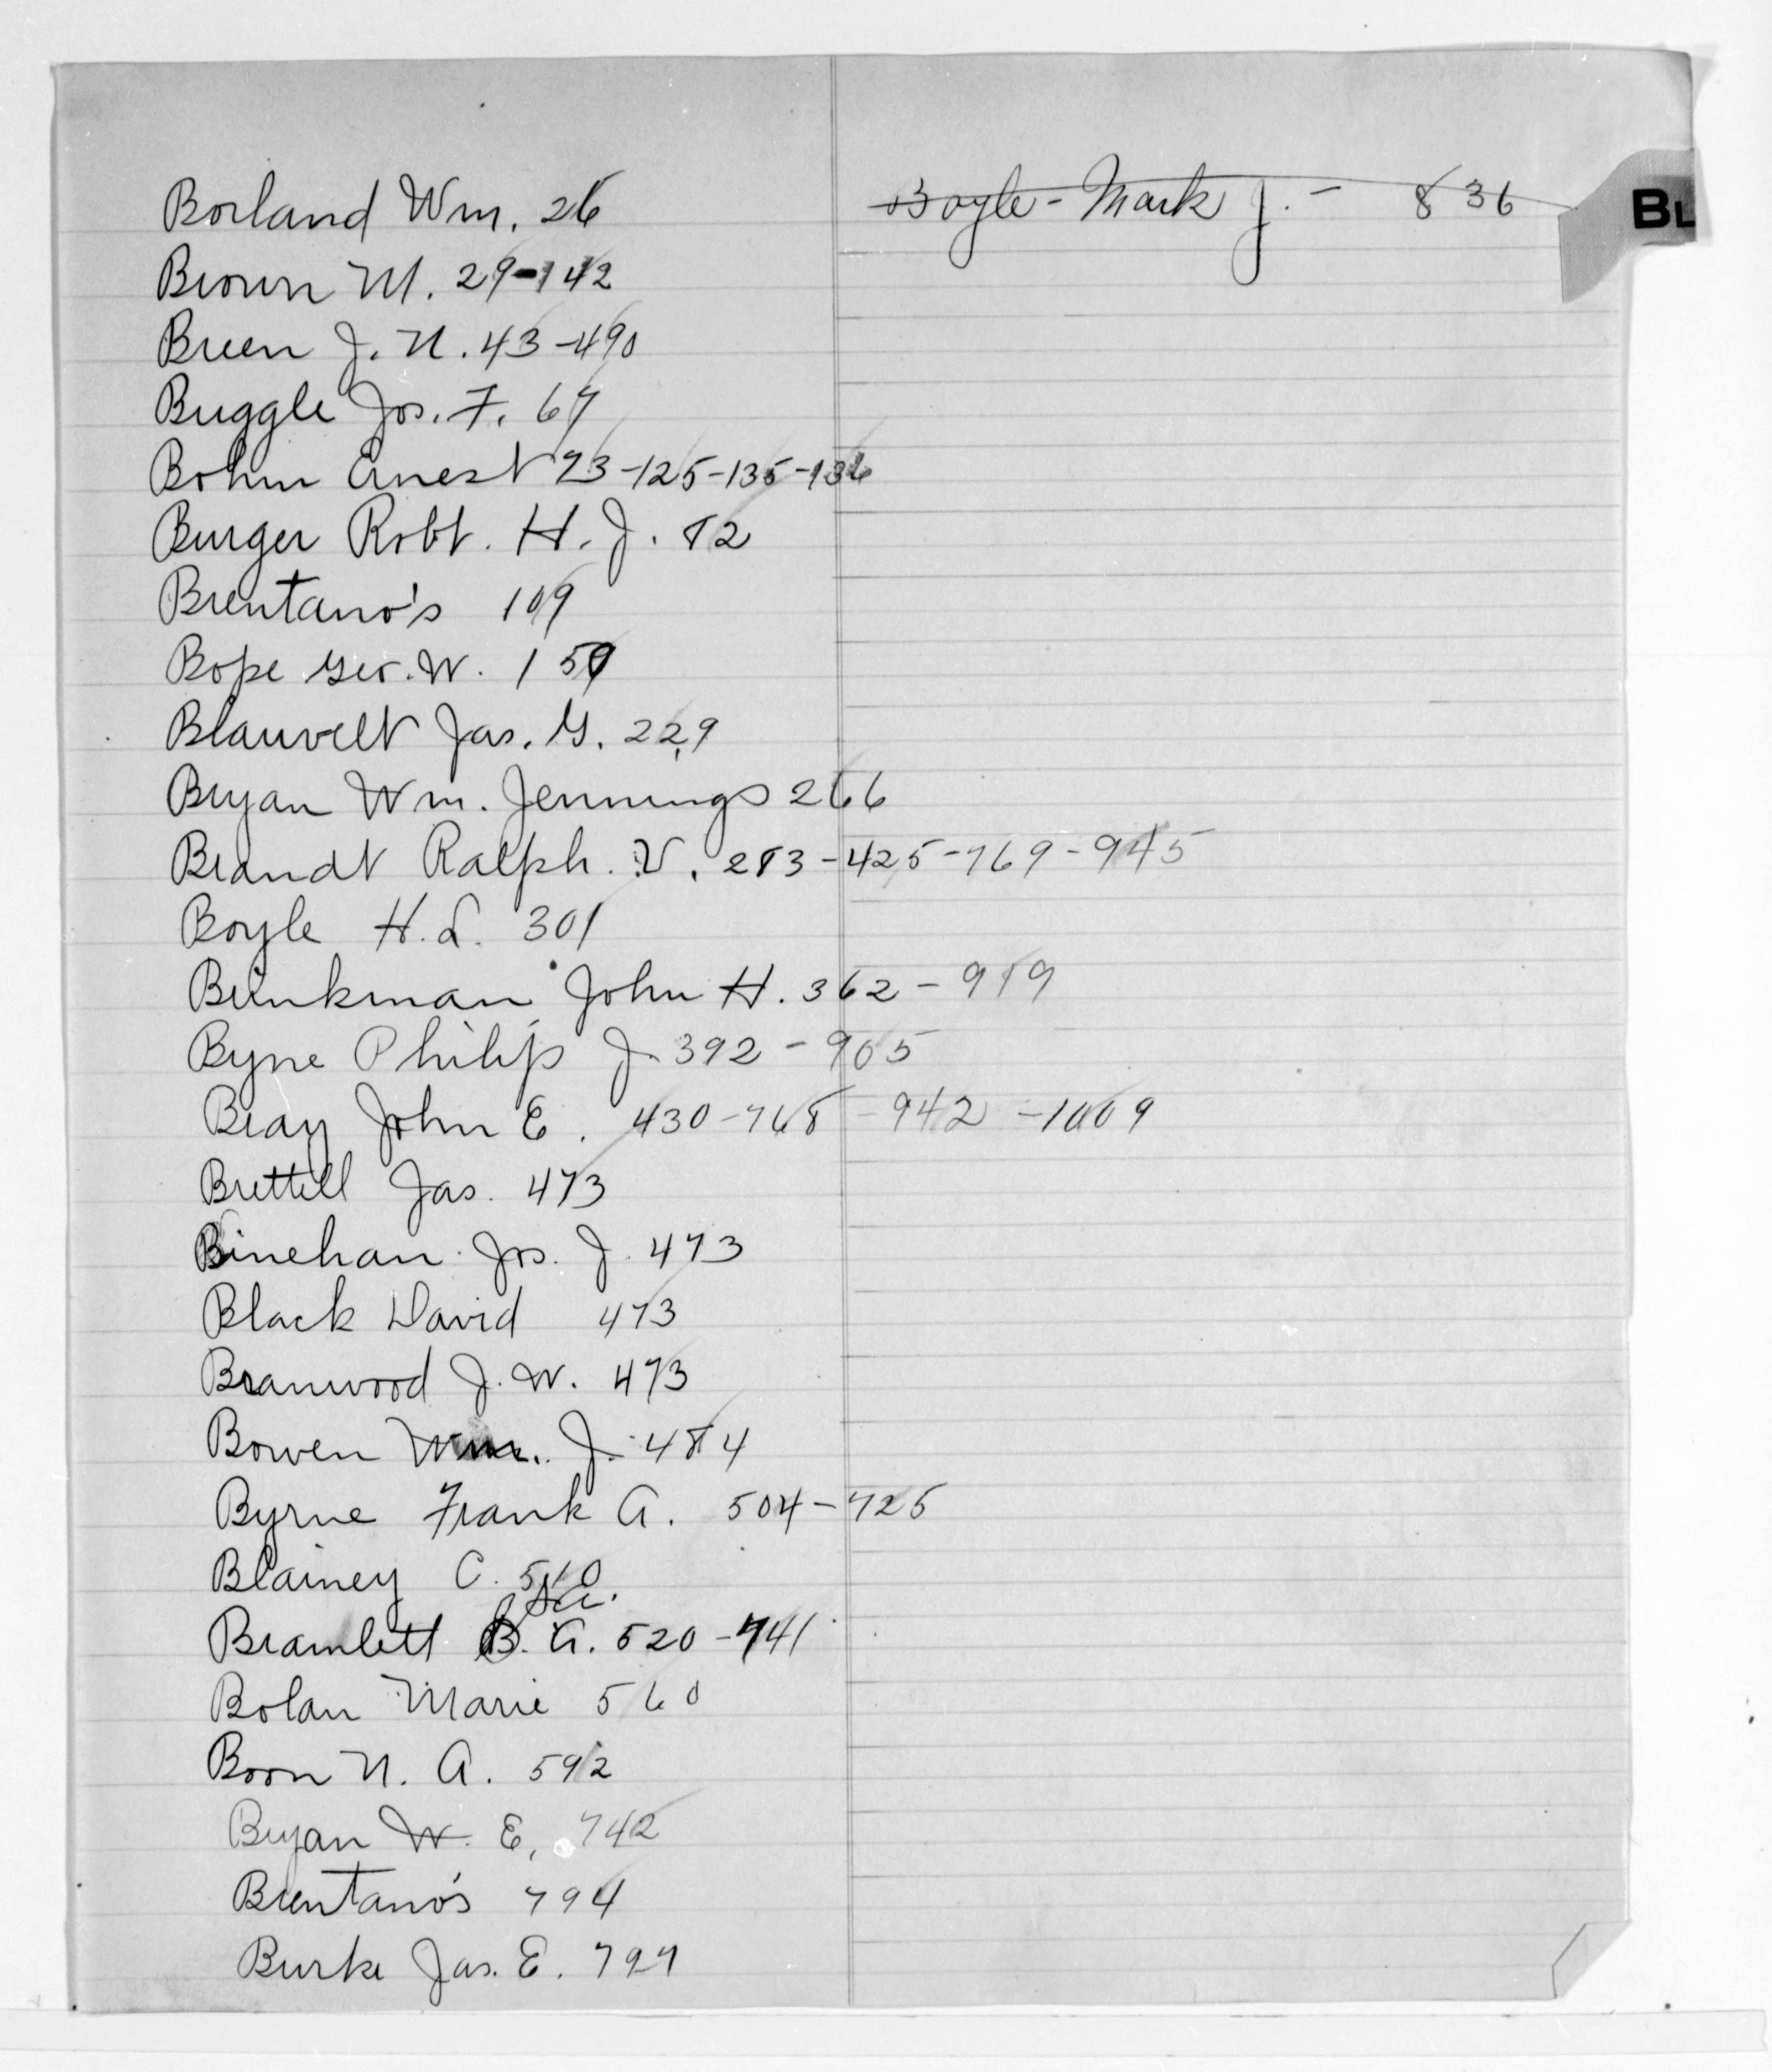 Borland Wm. 26
Brown M. 29-142
Breen J. N. 43-490
Buggle Jos. F. 67
Bohm Ernest 73-125-135-136
Burger Robt. H. J. 82
Brentano's 109
Bope Geo. W. 159
Blauvelt Jas. G. 229
Bryan Wm. Jennings 266
Brandt Ralph. V. 283-425-769-945
Boyle H. L. 301
Brinkman John H. 362-919
Byne Philip J. 392-905
Bray John E. 430-768-942-1009
Brettell Jas. 473
Binehan Jos. J. 473
Black David 473
Branwood J. W. 473
Bowen Wm. J. 484
Byrne Frank A. 504-725
Blainey C. 510
Bramlett B. A. 520-741
Bolan Marie 560
Boon N. A. 592
Bryan W. E. 742
Brentano's 794
Burke Jas. E. 797
Boyle - Mark J. - 836
BL